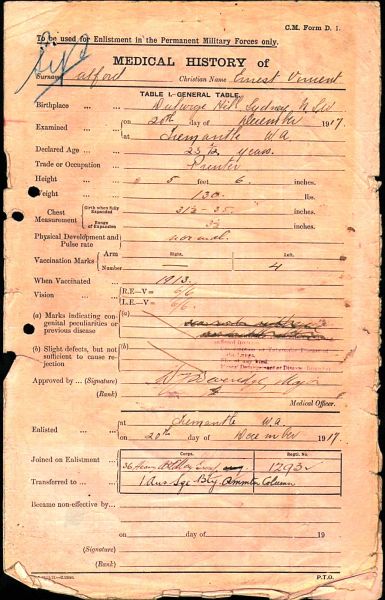 C.M. Form D. 1.
To be used for Enlistment in the Permanent Military Forces only.
MEDICAL HISTORY of
Surname Christian Name Ernest Vincent
TABLE I.—GENERAL TABLE.
Birthplace ... ... Dulwich Hill, Sydney, N.S.W
Examined ... ... on 20th day of December 1917
at Fremantle W.A.
Declared Age ... ... 23 years.
Trade or Occupation ... Printer
Height ... ... 5 feet 6 inches.
Weight ... ... 130 lbs.
Chest Measurement
Girth when fully Expanded inches.
Range of Expansion inches.
Physical Development and Pulse rate normal.
Vaccination Marks Arm Right. Left.
Number — 4
When Vaccinated ... 1913.
Vision ... ... R.E—V= 6/6
L.E—V= 6/6.
(a) Marks indicating congenital peculiarities or previous disease (a)
(b) Slight defects, but not sufficient to cause rejection (b)
Approved by ... (Signature)
(Rank)
Medical Officer.
Enlisted ... ... at Fremantle W.A.
on 20th day of December 1917
Corps. Regtl. No.
Joined on Enlistment ... 36
Transferred to ... ... 1 Aus Sge Bty Ammtn Column
Became non-effective by ...
on day of 19
(Signature)
(Rank)
P.T.O.